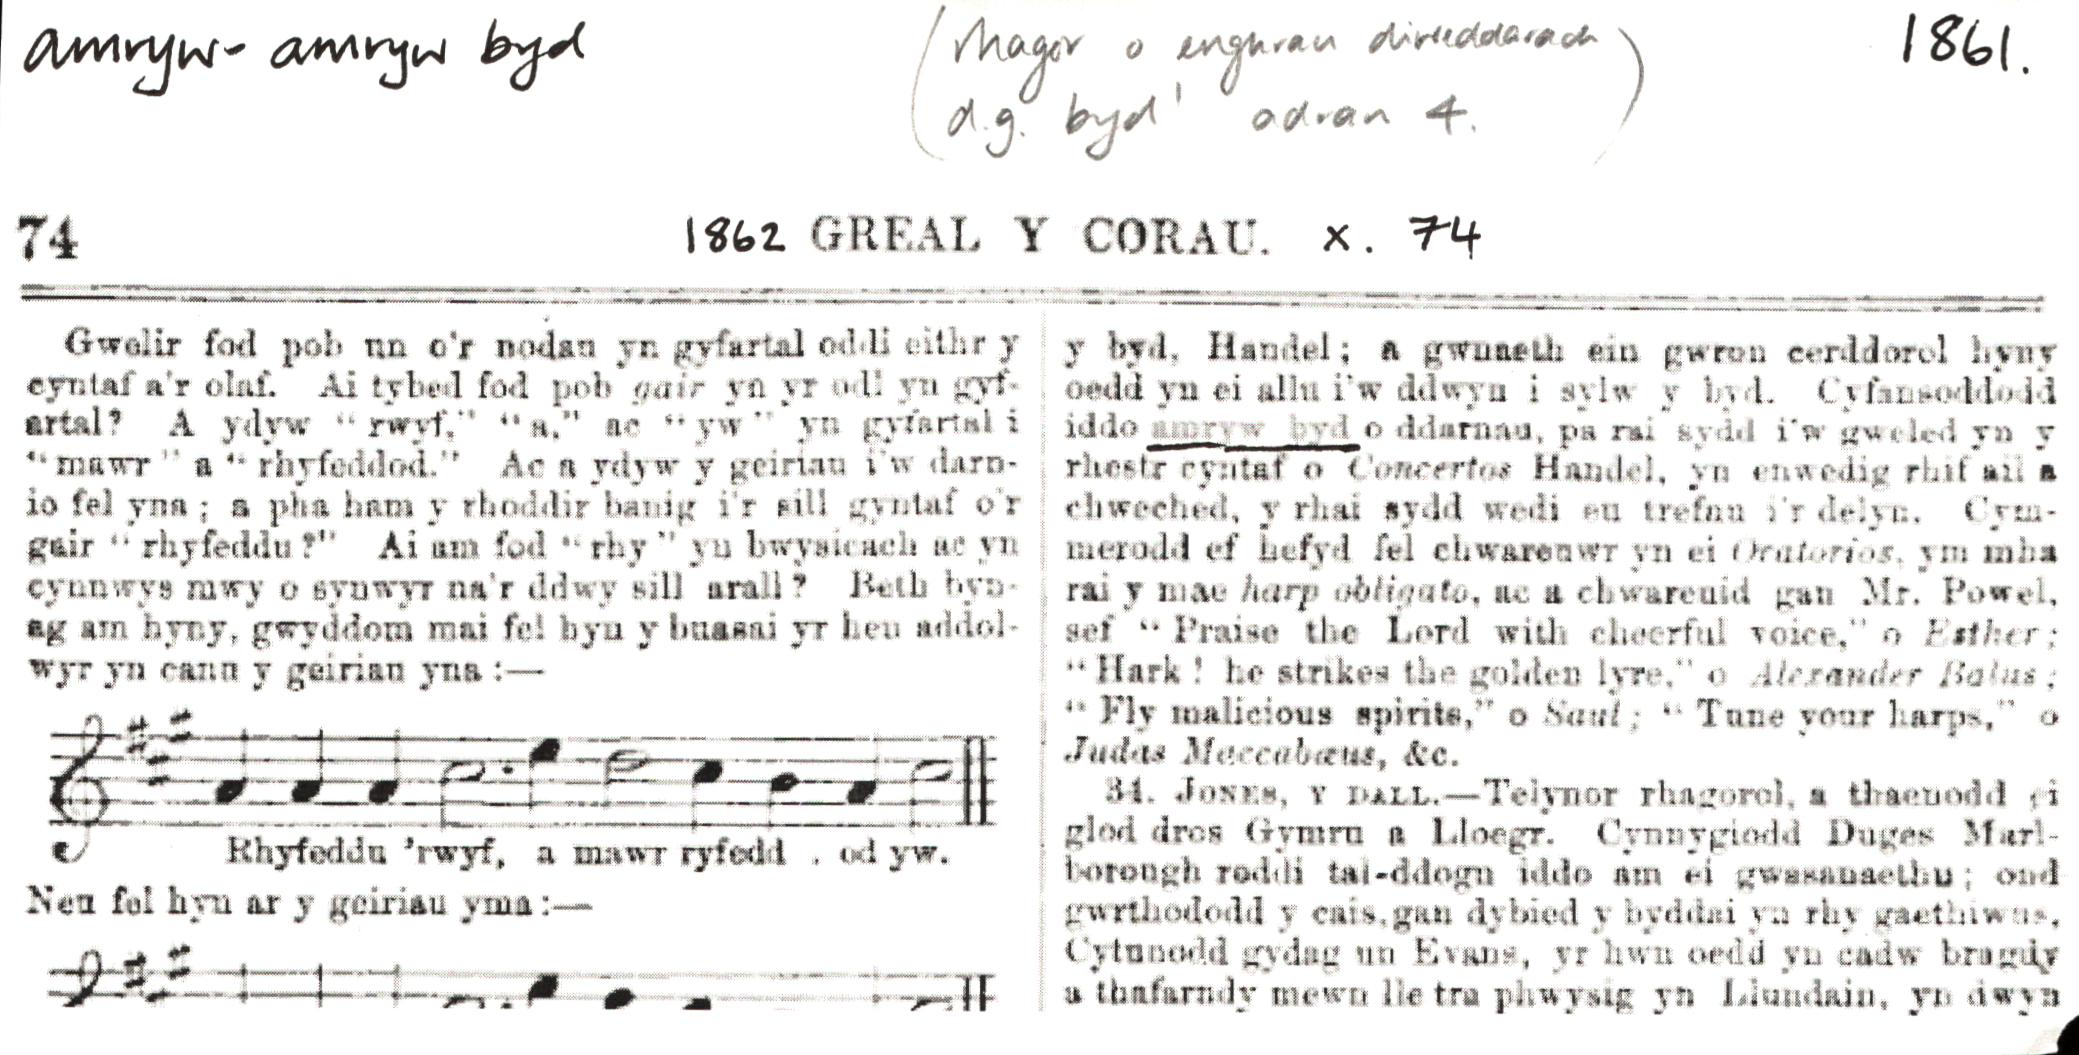 amryw - amryw byd
(rhagor o enghrau diweddarach
d.g. byd¹ adran 4.)
1861.
74
1862 GREAL Y CORAU. x. 74
Gwelir fod pob un o'r nodau yn gyfartal oddi eithr y
cyntaf a'r olaf. Ai tybed fod pob gair yn yr odl yn gyf-
artal? A ydyw "rwyf," "a," ac "yw" yn gyfartal i
"mawr" a "rhyfeddod." Ac a ydyw y geiriau i'w darn-
io fel yna; a pha ham y rhoddir banig i'r sill gyntaf o'r
gair "rhyfeddu?" Ai am fod "rhy" yn bwysicach ac yn
cynnwys mwy o synwyr na'r ddwy sill arall? Beth byn-
ag am hyny, gwyddom mai fel hyn y buasai yr hen addol-
wyr yn canu y geiriau yna:—
Rhyfeddu 'rwyf, a mawr ryfedd . od yw.
Neu fel hyn ar y geiriau yma:—
y byd, Handel; a gwnaeth ein gwron cerddorol hyny
oedd yn ei allu i'w ddwyn i sylw y byd. Cyfansoddodd
iddo amryw byd o ddarnau, pa rai sydd i'w gweled yn y
rhestr cyntaf o Concertos Handel, yn enwedig rhif ail a
chweched, y rhai sydd wedi eu trefnu i'r delyn. Cym-
merodd ef hefyd fel chwareuwr yn ei Oratorios, ym mha
rai y mae harp obligato, ac a chwareuid gan Mr. Powel,
sef "Praise the Lord with cheerful voice," o Esther;
"Hark! he strikes the golden lyre," o Alexander Balus;
"Fly malicious spirits," o Saul; "Tune your harps," o
Judas Maccabæus, &c.
34. JONES, Y DALL.—Telynor rhagorol, a thaenodd ei
glod dros Gymru a Lloegr. Cynnygiodd Duges Marl-
borough roddi tal-ddogn iddo am ei gwasanaethu; ond
gwrthododd y cais, gan dybied y byddai yn rhy gaethiwus.
Cytunodd gydag un Evans, yr hwn oedd yn cadw bragdy
a thafarndy mewn lle tra phwysig yn Llundain, yn dwyn